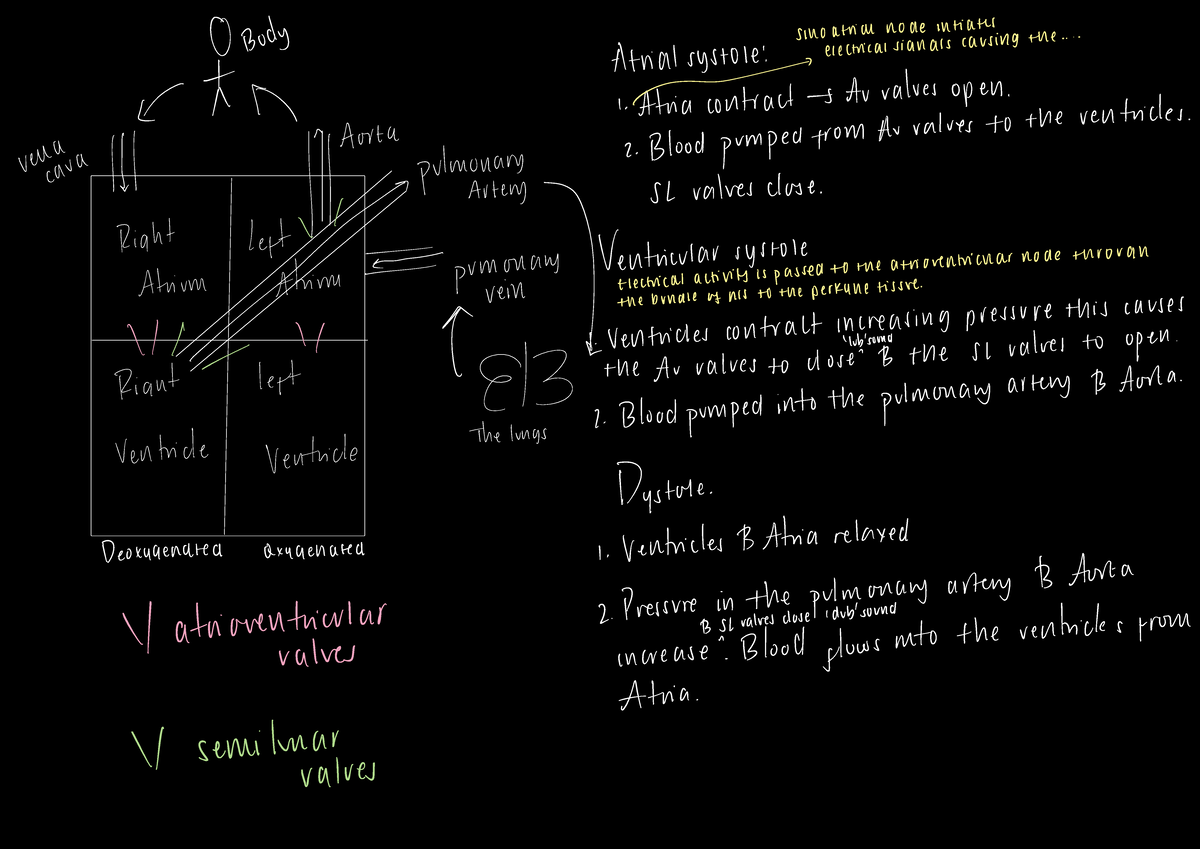 Body
vena
cava
Aorta
pulmonary
Artery
Right
Atrium
left
Atrium
pvmonary
vein
Right
Ventricle
left
Ventricle
The lungs
Deoxygenated
oxygenated
V atrioventricular
valves
V semilunar
valves
sino atrial node initiates
electrical signals causing the....
Atrial systole:
1. Atria contract → AV valves open.
2. Blood pumped from AV valves to the ventricles.
SL valves close.
Ventricular systole
Electrical activity is passed to the atrioventricular node through
the bundle of his to the perkune tissue.
1. Ventricles contract increasing pressure this causes
'lub' sound
the AV valves to close ^ & the SL valves to open.
2. Blood pumped into the pulmonary artery & Aorta.
Dystole.
1. Ventricles & Atria relaxed
2. Pressure in the pulmonary artery & Aorta
& SL valves close 'dub' sound
increase ^. Blood flows into the ventricles from
Atria.